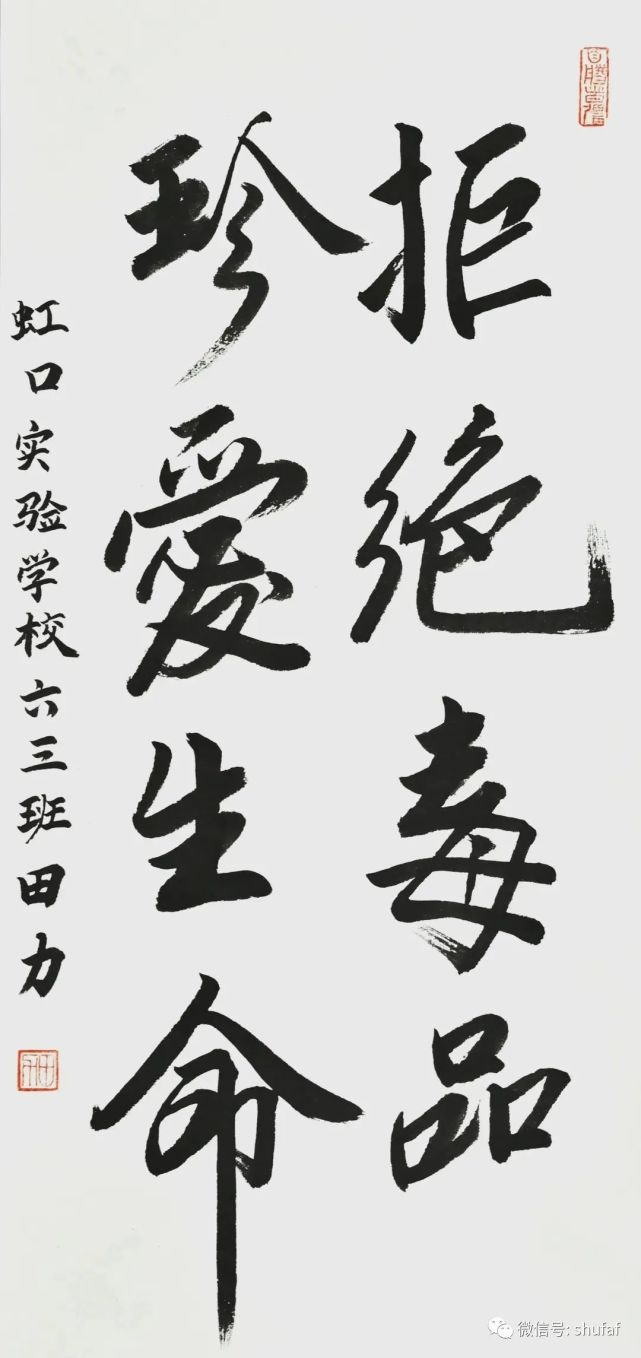 拒绝毒品
珍愛生命
虹口实验学校六三班田力
微信号: shufaf